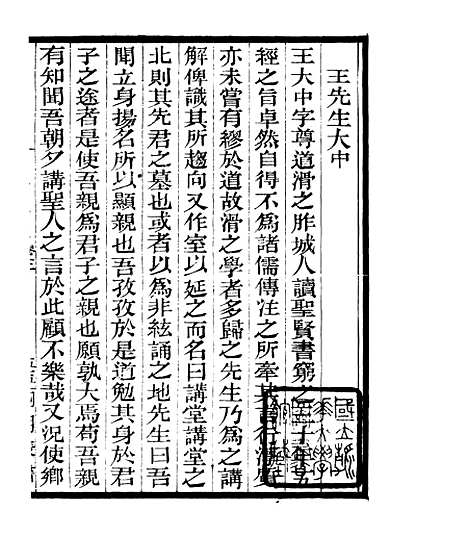 王先生大中
王大中字尊道滑之胙城人讀聖賢書窮
經之旨卓然自得不為諸儒傳注之所牽
亦未嘗有繆於道故滑之學者多歸之先生乃為之講
解俾識其所趨向又作室以延之而名曰講堂講堂之
北則其先君之墓也或者以為非絃誦之地先生曰吾
聞立身揚名所以顯親也吾孜孜於是道勉其身於君
子之途者是使吾親為君子之親也願孰大焉苟吾親
有知聞吾朝夕講聖人之言於此顧不樂哉又況使鄉